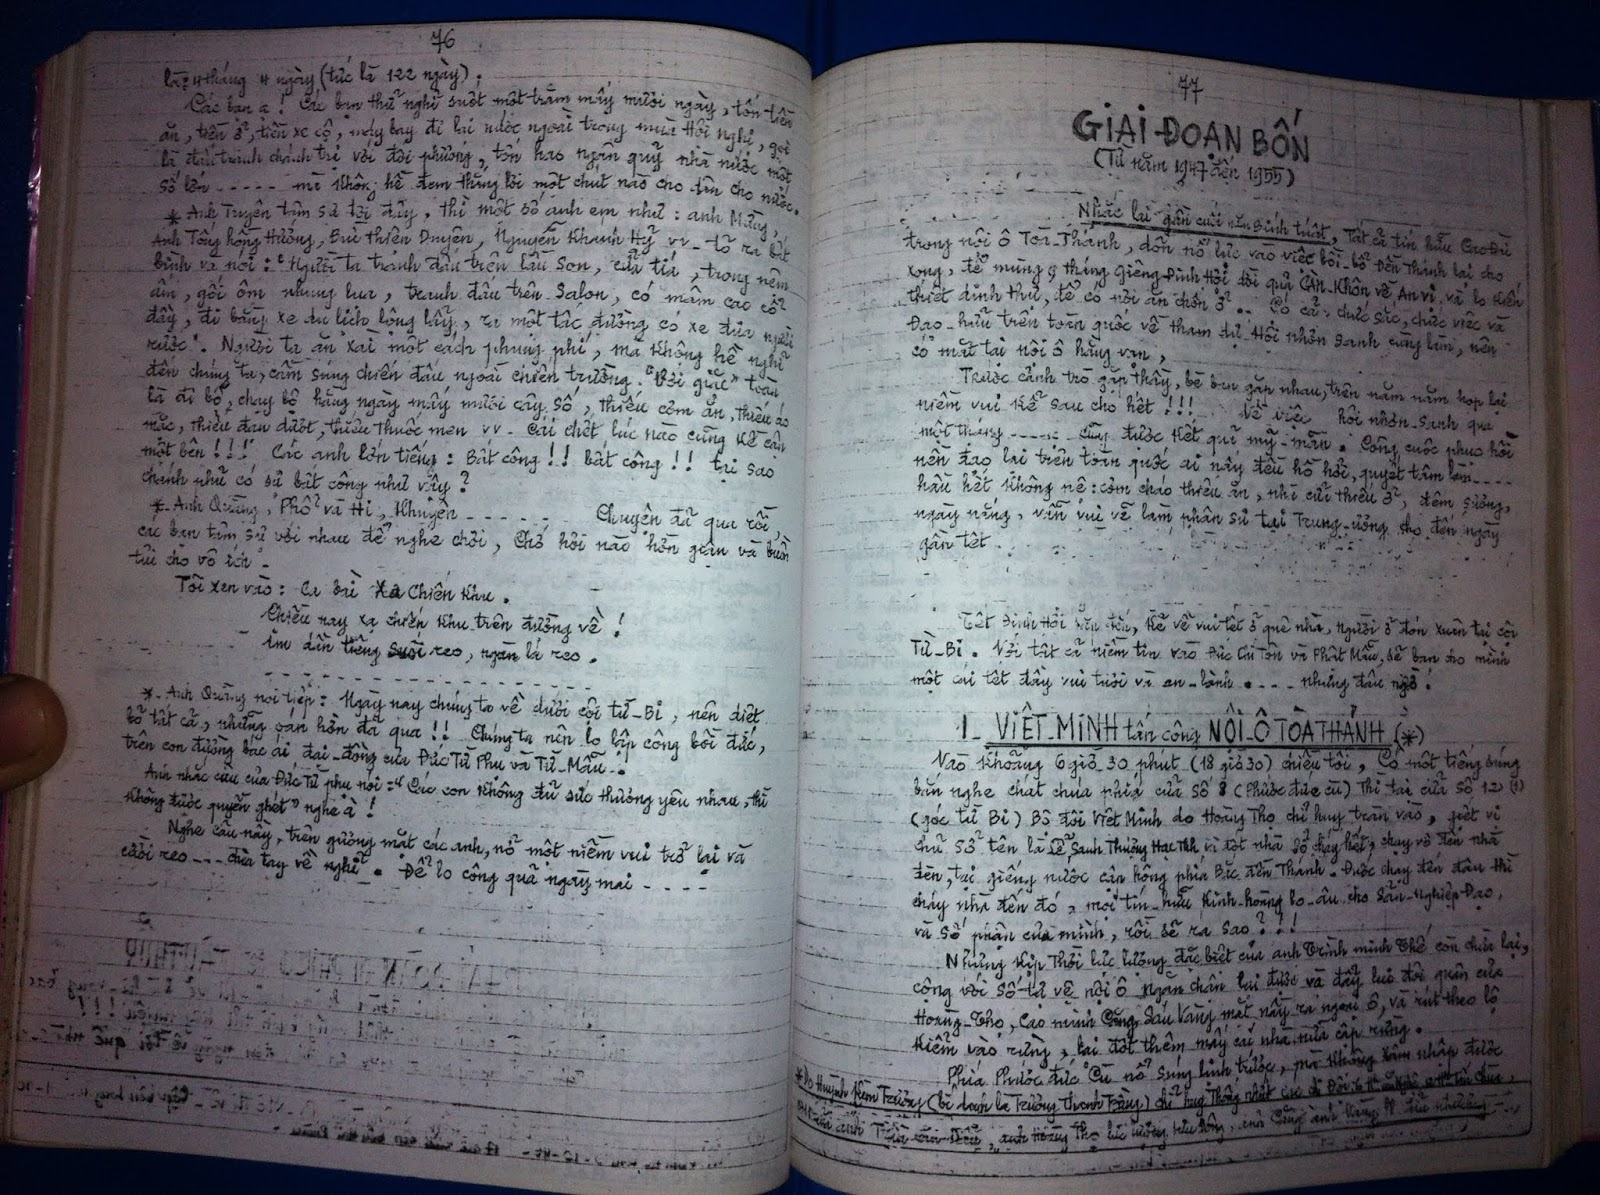 76
là: 4 tháng 4 ngày (tức là 122 ngày).
Các bạn ạ! Các bạn thử nghĩ suốt một trăm mấy mươi ngày, tốn tiền
ăn, tiền ở, tiền xe cộ, máy bay đi lại nước ngoài trong mùa Hội nghị, gọi
là đấu tranh chánh trị với đối phương, tốn hao ngân quỹ nhà nước một
số lớn ----- mà không hề đem thắng lợi một chút nào cho dân cho nước.
* Anh Truyện tâm sự tới đây, thì một số anh em như: anh Mừng,
Anh Tống hồng Hường, Bùi thiên Duyên, Nguyễn Khanh Hỷ vv- tỏ ra bất
bình và nói: "Người ta tranh đấu trên lầu son, cửa tía, trong nệm
ấm, gối ôm nhung lụa, tranh đấu trên Salon, có mâm cao cổ
đầy, đi bằng xe du lịch lộng lẫy, ra một tấc đường có xe đưa người
rước". Người ta ăn xài một cách phung phí, mà không hề nghĩ
đến chúng ta, cầm súng chiến đấu ngoài chiến trường. "Với giặc" toàn
là đi bộ, chạy bộ hàng ngày mấy mươi cây số, thiếu cơm ăn, thiếu áo
mặc, thiếu đậu đuốt, thiếu thuốc men vv- Cái chết lúc nào cũng kề cận
một bên!!! Các anh lớn tiếng: Bất công!! bất công!! tại sao
chánh nhủ có sự bất công như vậy?
* Anh Quảng, Phổ và Hi, Khuyên ------ Chuyện đã qua rồi
các bạn tâm sự với nhau để nghe chơi, Chớ hỏi nào hờn giận và buồn
tủi cho vô ích.
Tôi xen vào: Ca bài Xa Chiến Khu.
Chiều nay xa chiến khu trên đường về!
Im dần tiếng suối reo, ngàn lá reo.
* Anh Quảng nói tiếp: Ngày nay chúng ta về dưới cội Từ-Bi, nên diệt
bỏ tất cả, những oán hờn đã qua!! Chúng ta nên lo lập công bồi đức,
trên con đường bác ái đại-đồng của Đức Từ Phụ và Từ-Mẫu.
Anh nhắc câu của Đức Từ phụ nói: "Các con không đủ sức thương yêu nhau, thì
không được quyền ghét" nghe à!
Nghe câu nầy, trên gương mặt các anh, nở một niềm vui trở lại và
cười reo --- chia tay về nghỉ. Để lo công quả ngày mai ----
77
GIAI ĐOẠN BỐN
(Từ năm 1947 đến 1955)
Nhắc lại gần cuối năm Bính tuất, Tất cả tín hữu Cao Đài
trong nội ô Tòa-Thánh, dồn nỗ lực vào việc bồi-bổ Đền Thánh lại cho
xong, để mùng 9 tháng Giêng Đinh Hợi dời quả Càn-Khôn về An vị, và lo kiến
thiết dinh thự, để có nơi ăn chốn ở.. Có cả: chức sắc, chức việc và
Đạo-hữu trên toàn quốc về tham dự Hội nhơn sanh cùng làm, nên
có mặt tại nội ô hàng vạn,
Trước cảnh trò gặp thầy, bè bạn gần nhau, trên năm năm họp lại
niềm vui kể sau cho hết!!! Về việc hội nhơn-sanh qua
một tháng ---- cũng được kết quả mỹ-mãn. Công cuộc phục hồi
nền đạo lại trên toàn quốc ai nấy đều hồ hởi, quyết tâm làm----
hầu hết không nệ: cơm cháo thiếu ăn, nhà cửa thiếu ở, đêm sương,
ngày nắng, vẫn vui vẻ làm phận sự tại Trung-ương cho đến ngày
gần tết.
Tết Đinh Hợi gần đến, kẻ về vui tết ở quê nhà, người ở đón xuân tại cội
Từ-Bi. Với tất cả niềm tin vào Đức Chí Tôn và Phật Mẫu, sẽ ban cho mình
một cái tết đầy vui tươi và an-lành .... nhưng đâu ngờ!
1- VIỆT-MINH tấn công NỘI-Ô TÒA THÁNH (*)
Vào khoảng 6 giờ 30 phút (18 giờ 30) chiều tối, Có một tiếng súng
bắn nghe chát chúa phía cửa số 8 (Phước đức cũ) Thì tại cửa số 12 (1)
(góc từ Bi) Bộ đội Việt Minh do Hoàng Thọ chỉ huy tràn vào, giết vị
chữ sở tên là Lễ Sanh Thượng Hạc Thh và đốt nhà sở cháy hết, chạy vô đến nhà
đèn, tại giếng nước cận hông phía Bắc đền Thánh. Đuốc chạy đến đâu thì
cháy nhà đến đó, mọi tín-hữu kinh-hoàng lo-âu cho Sản-Nghiệp Đạo,
và số phận của mình, rồi sẽ ra sao?!!!
Nhưng kịp thời lực lượng đặc biệt của anh Trình minh Thế còn chừa lại,
cộng với số từ về nội ô ngăn chận lại được và đẩy lui đội quân của
Hoàng-Thọ, Cao minh Cảng, Sáu Vàng mặt nầy ra ngoại ô, và rút theo lộ
kiểm vào rừng, lại đốt thêm mấy cái nhà nữa cặp rừng.
Phía Phước đức Cũ nổ súng lính trước, mà không xâm nhập được
* Do Huỳnh Kiêm Trường (bí danh là Trương Thanh Tòng) chỉ huy Thống nhứt